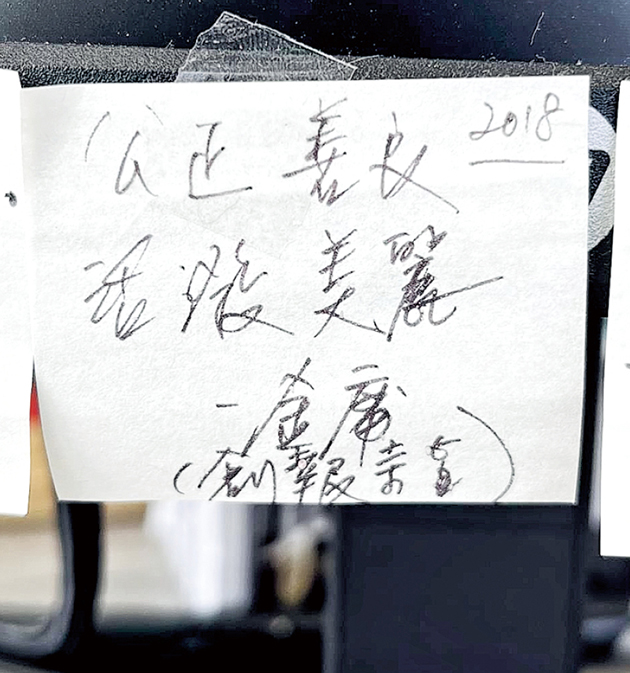 公正 善良 2018
活潑 美麗
－金庸
(創報宗旨)